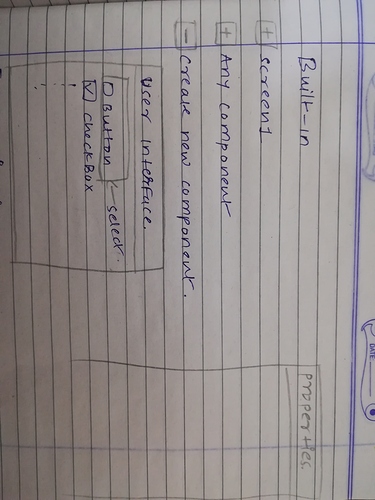 DATE
Built-in
+ screen1
+ Any component
- create new component.
User interface.
Button ← select.
checkBox
properties.